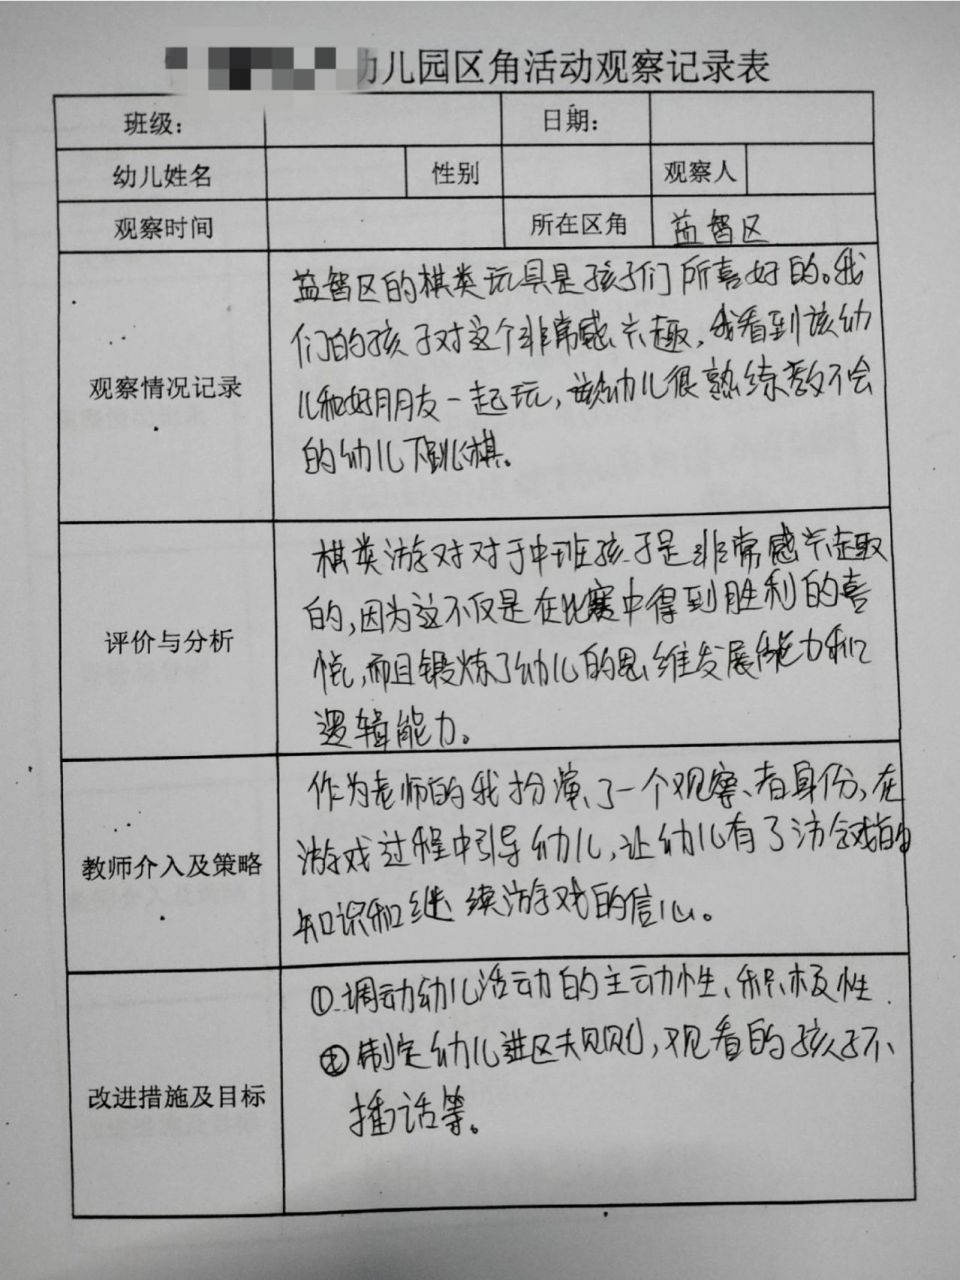 幼儿园区角活动观察记录表
班级： 日期：
幼儿姓名 性别 观察人
观察时间 所在区角 益智区
观察情况记录
益智区的棋类玩具是孩子们所喜好的。我
们的孩子对这个非常感兴趣，我看到该幼
儿和好朋友一起玩，该幼儿很熟练教不会
的幼儿下跳棋。
评价与分析
棋类游对对于中班孩子是非常感兴趣
的，因为这不仅是在比赛中得到胜利的喜
悦，而且锻炼了幼儿的思维发展能力和
逻辑能力。
教师介入及策略
作为老师的我扮演了一个观察者身份，在
游戏过程中引导幼儿，让幼儿有了
知识和继续游戏的信心。
改进措施及目标
①调动幼儿活动的主动性、积极性
②制定幼儿进区规则，观看的孩子不
插话等。